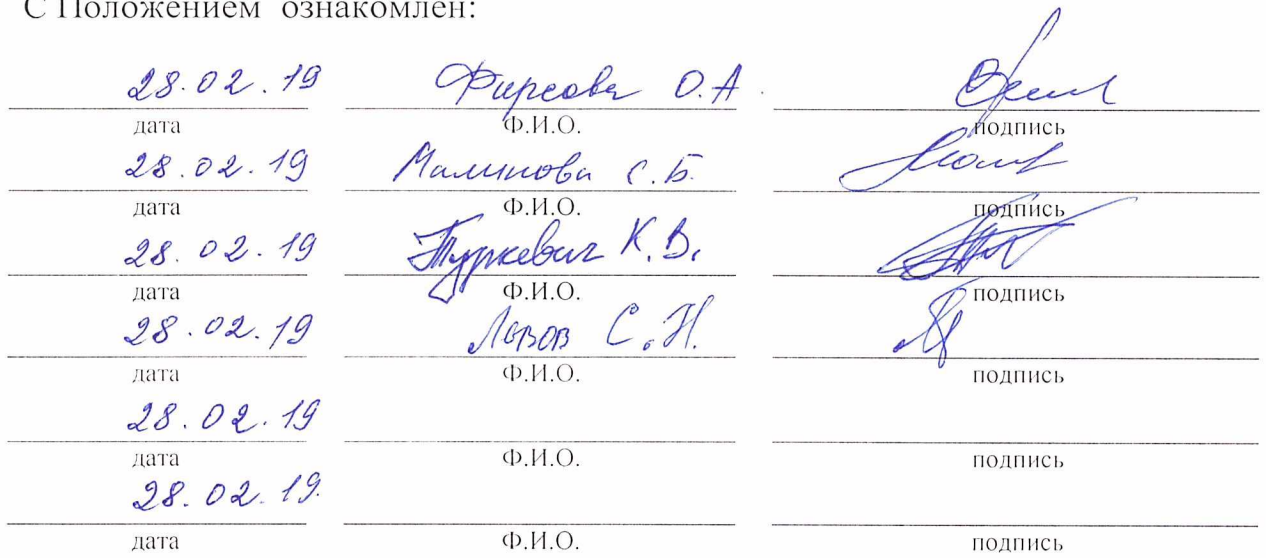 С Положением ознакомлен:
28.02.19 Фирсова О.А.
дата Ф.И.О. подпись
28.02.19 Малинова С.Б.
дата Ф.И.О. подпись
28.02.19 Туркевич К.В.
дата Ф.И.О. подпись
28.02.19 Львов С.Н.
дата Ф.И.О. подпись
28.02.19
дата Ф.И.О. подпись
28.02.19.
дата Ф.И.О. подпись